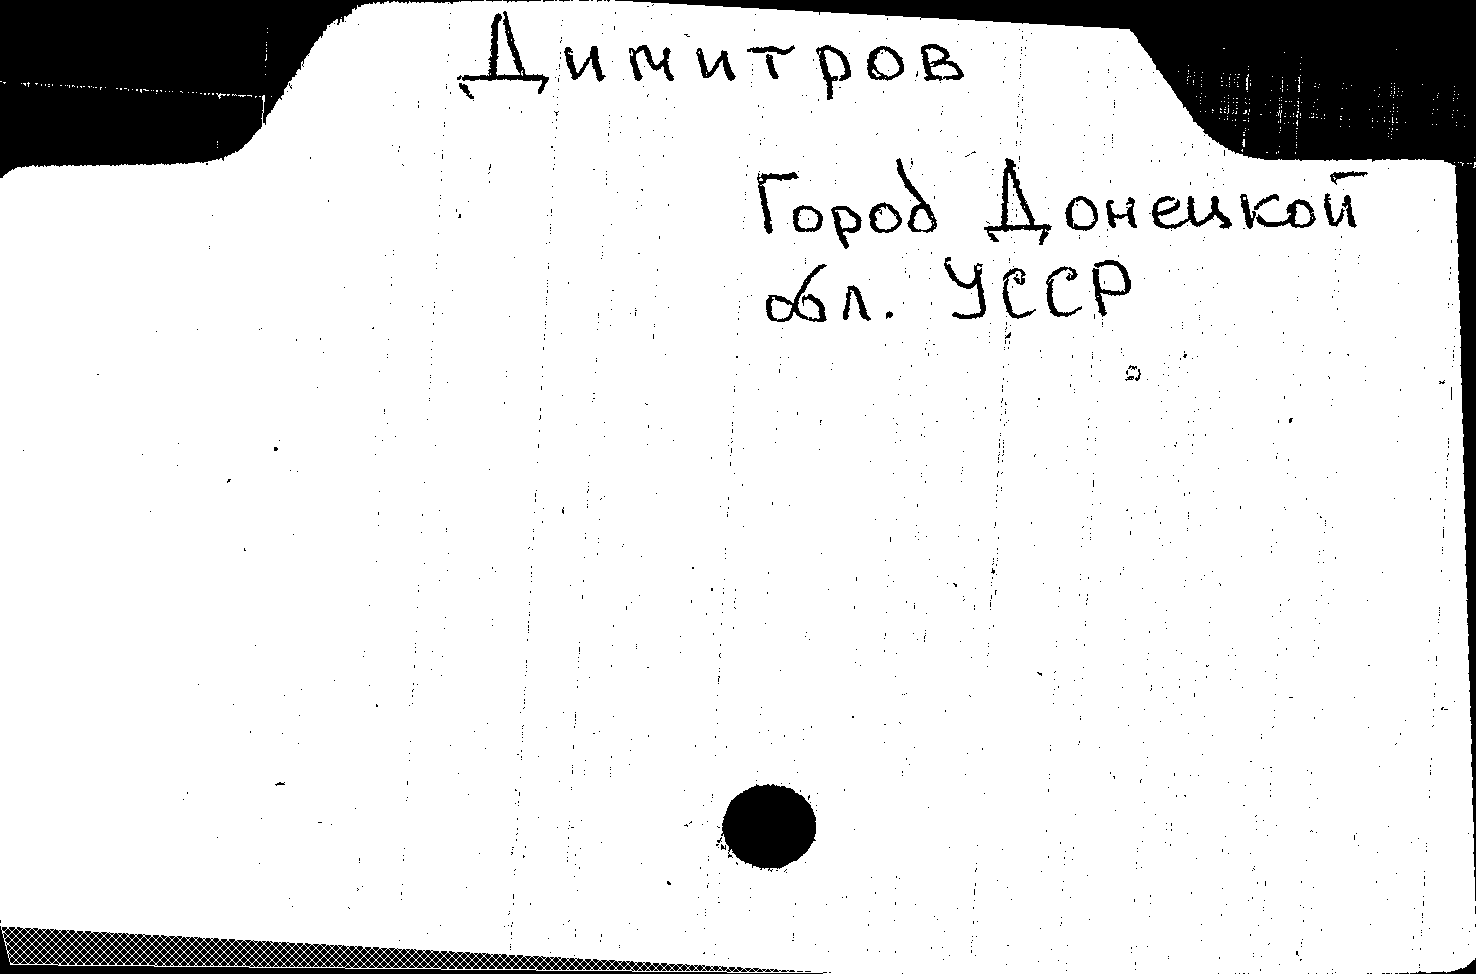 Димитров
Город Донецкой
обл. УССР